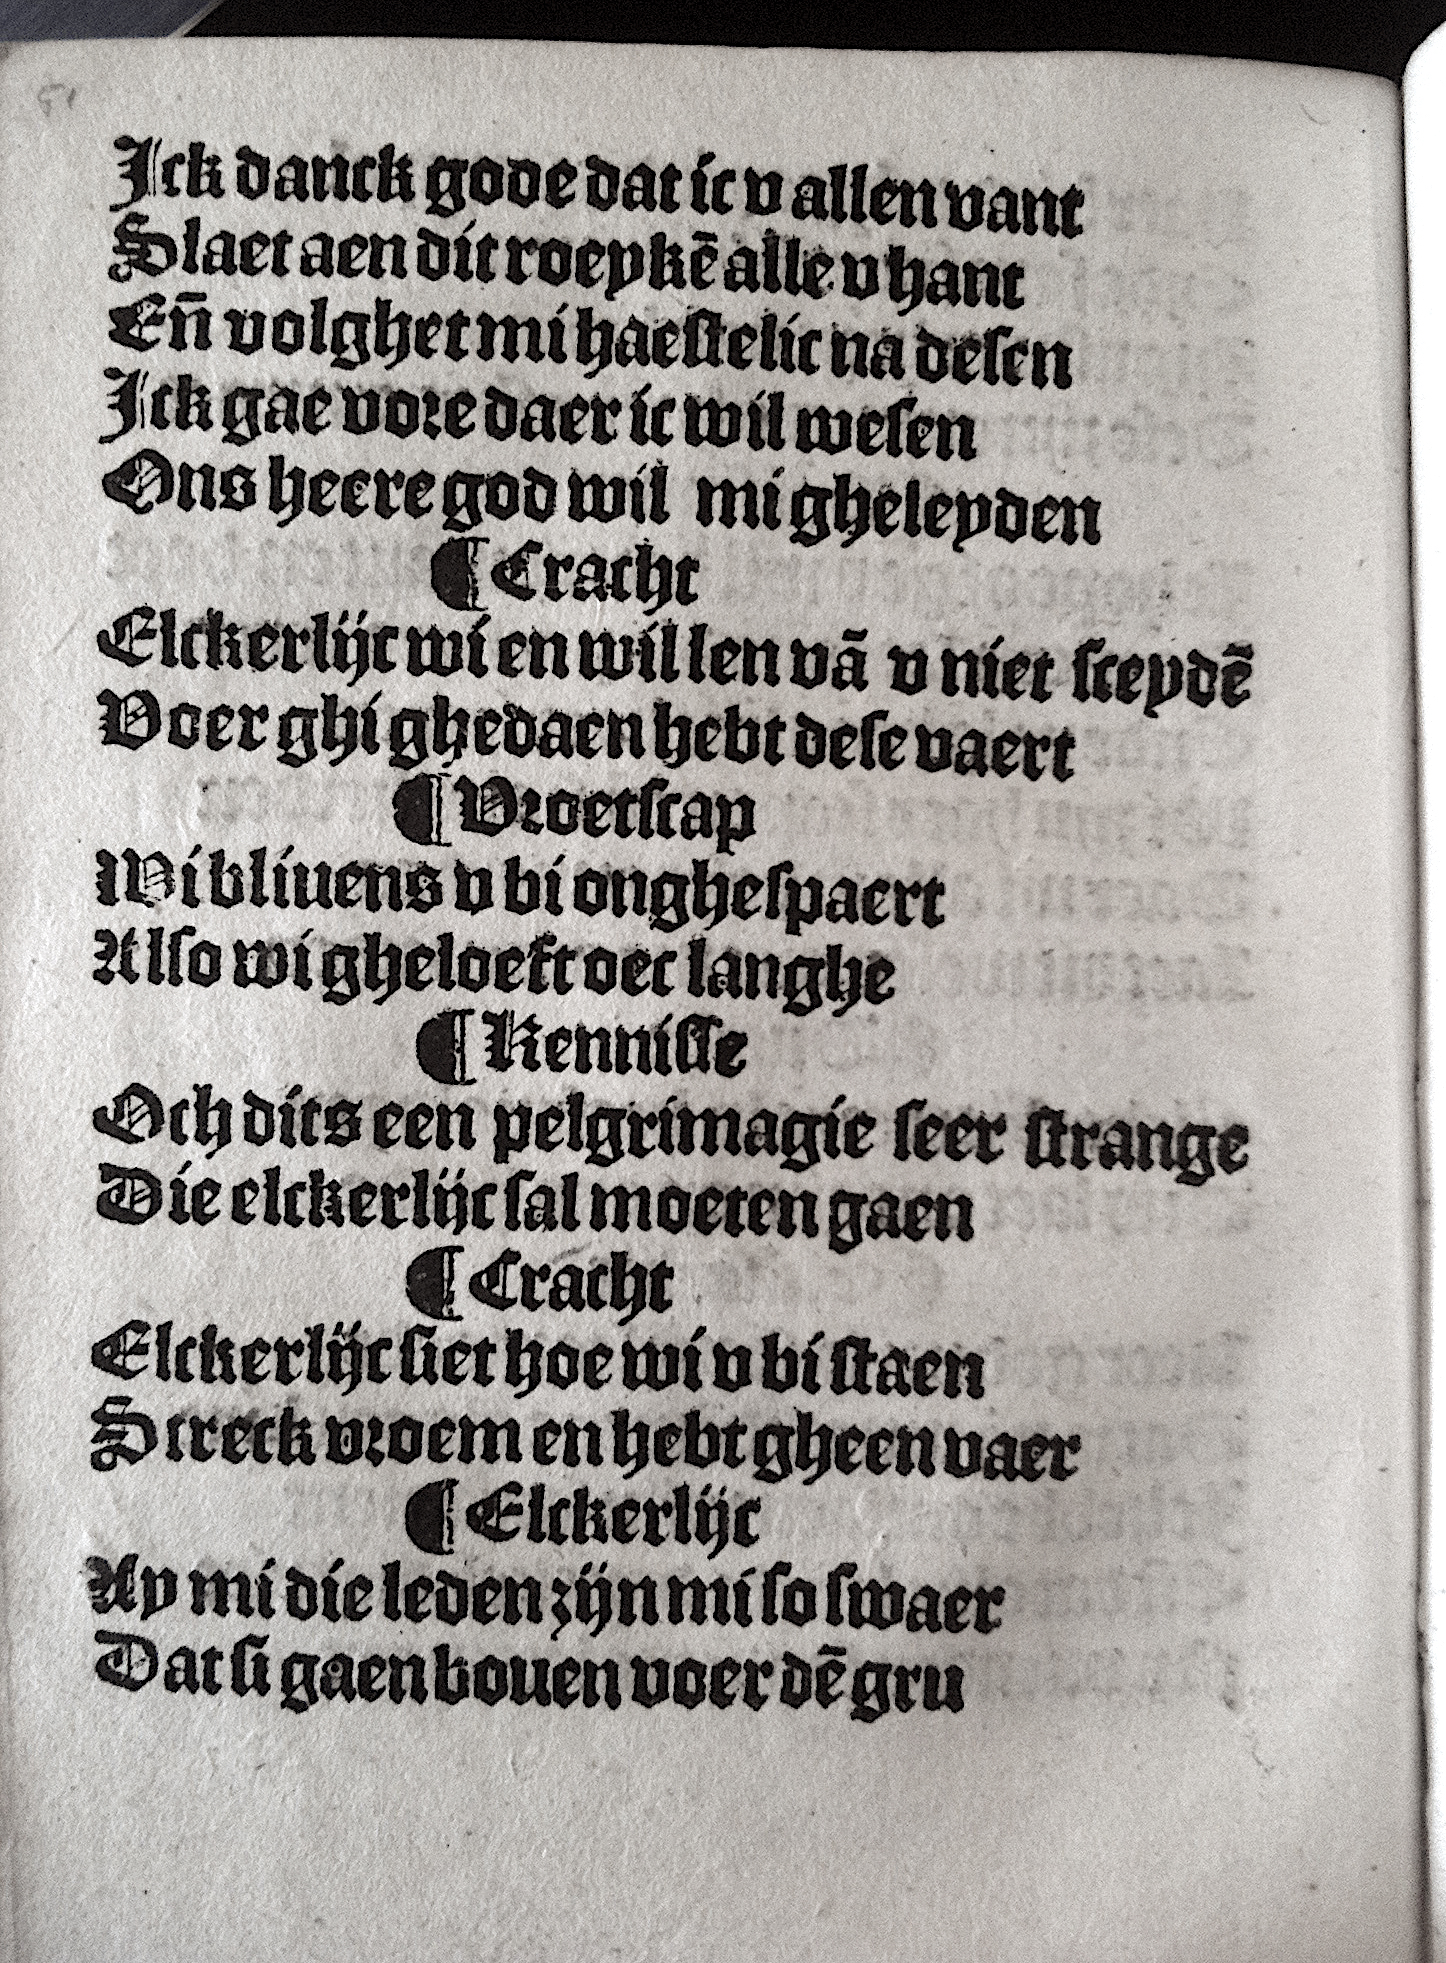 51
Jck danck gode dat ic v allen vant
Slaet aen dit roeykē alle v hant
Eñ volghet mi haeſtelic na deſen
Jck gae voꝛe daer ic wil weſen
Ons heere god wil mi gheleyden
¶ Cracht
Elckerlijc wi en willen vā v niet ſceydē
Voer ghi ghedaen hebt deſe vaert
¶ Vꝛoetſcap
Wi bliuens v bi ongheſpaert
Alſo wi gheloeft oec langhe
¶ Kenniſſe
Och dits een pelgrimagie ſeer ſtrange
Die elckerlijc ſal moeten gaen
¶ Cracht
Elckerlijc ſiet hoe wi v bi ſtaen
Streck vꝛoem en hebt gheen vaer
¶ Elckerlijc
Ay mi die leden zijn mi ſo ſwaer
Dat ſi gaen bouen voer dē gru